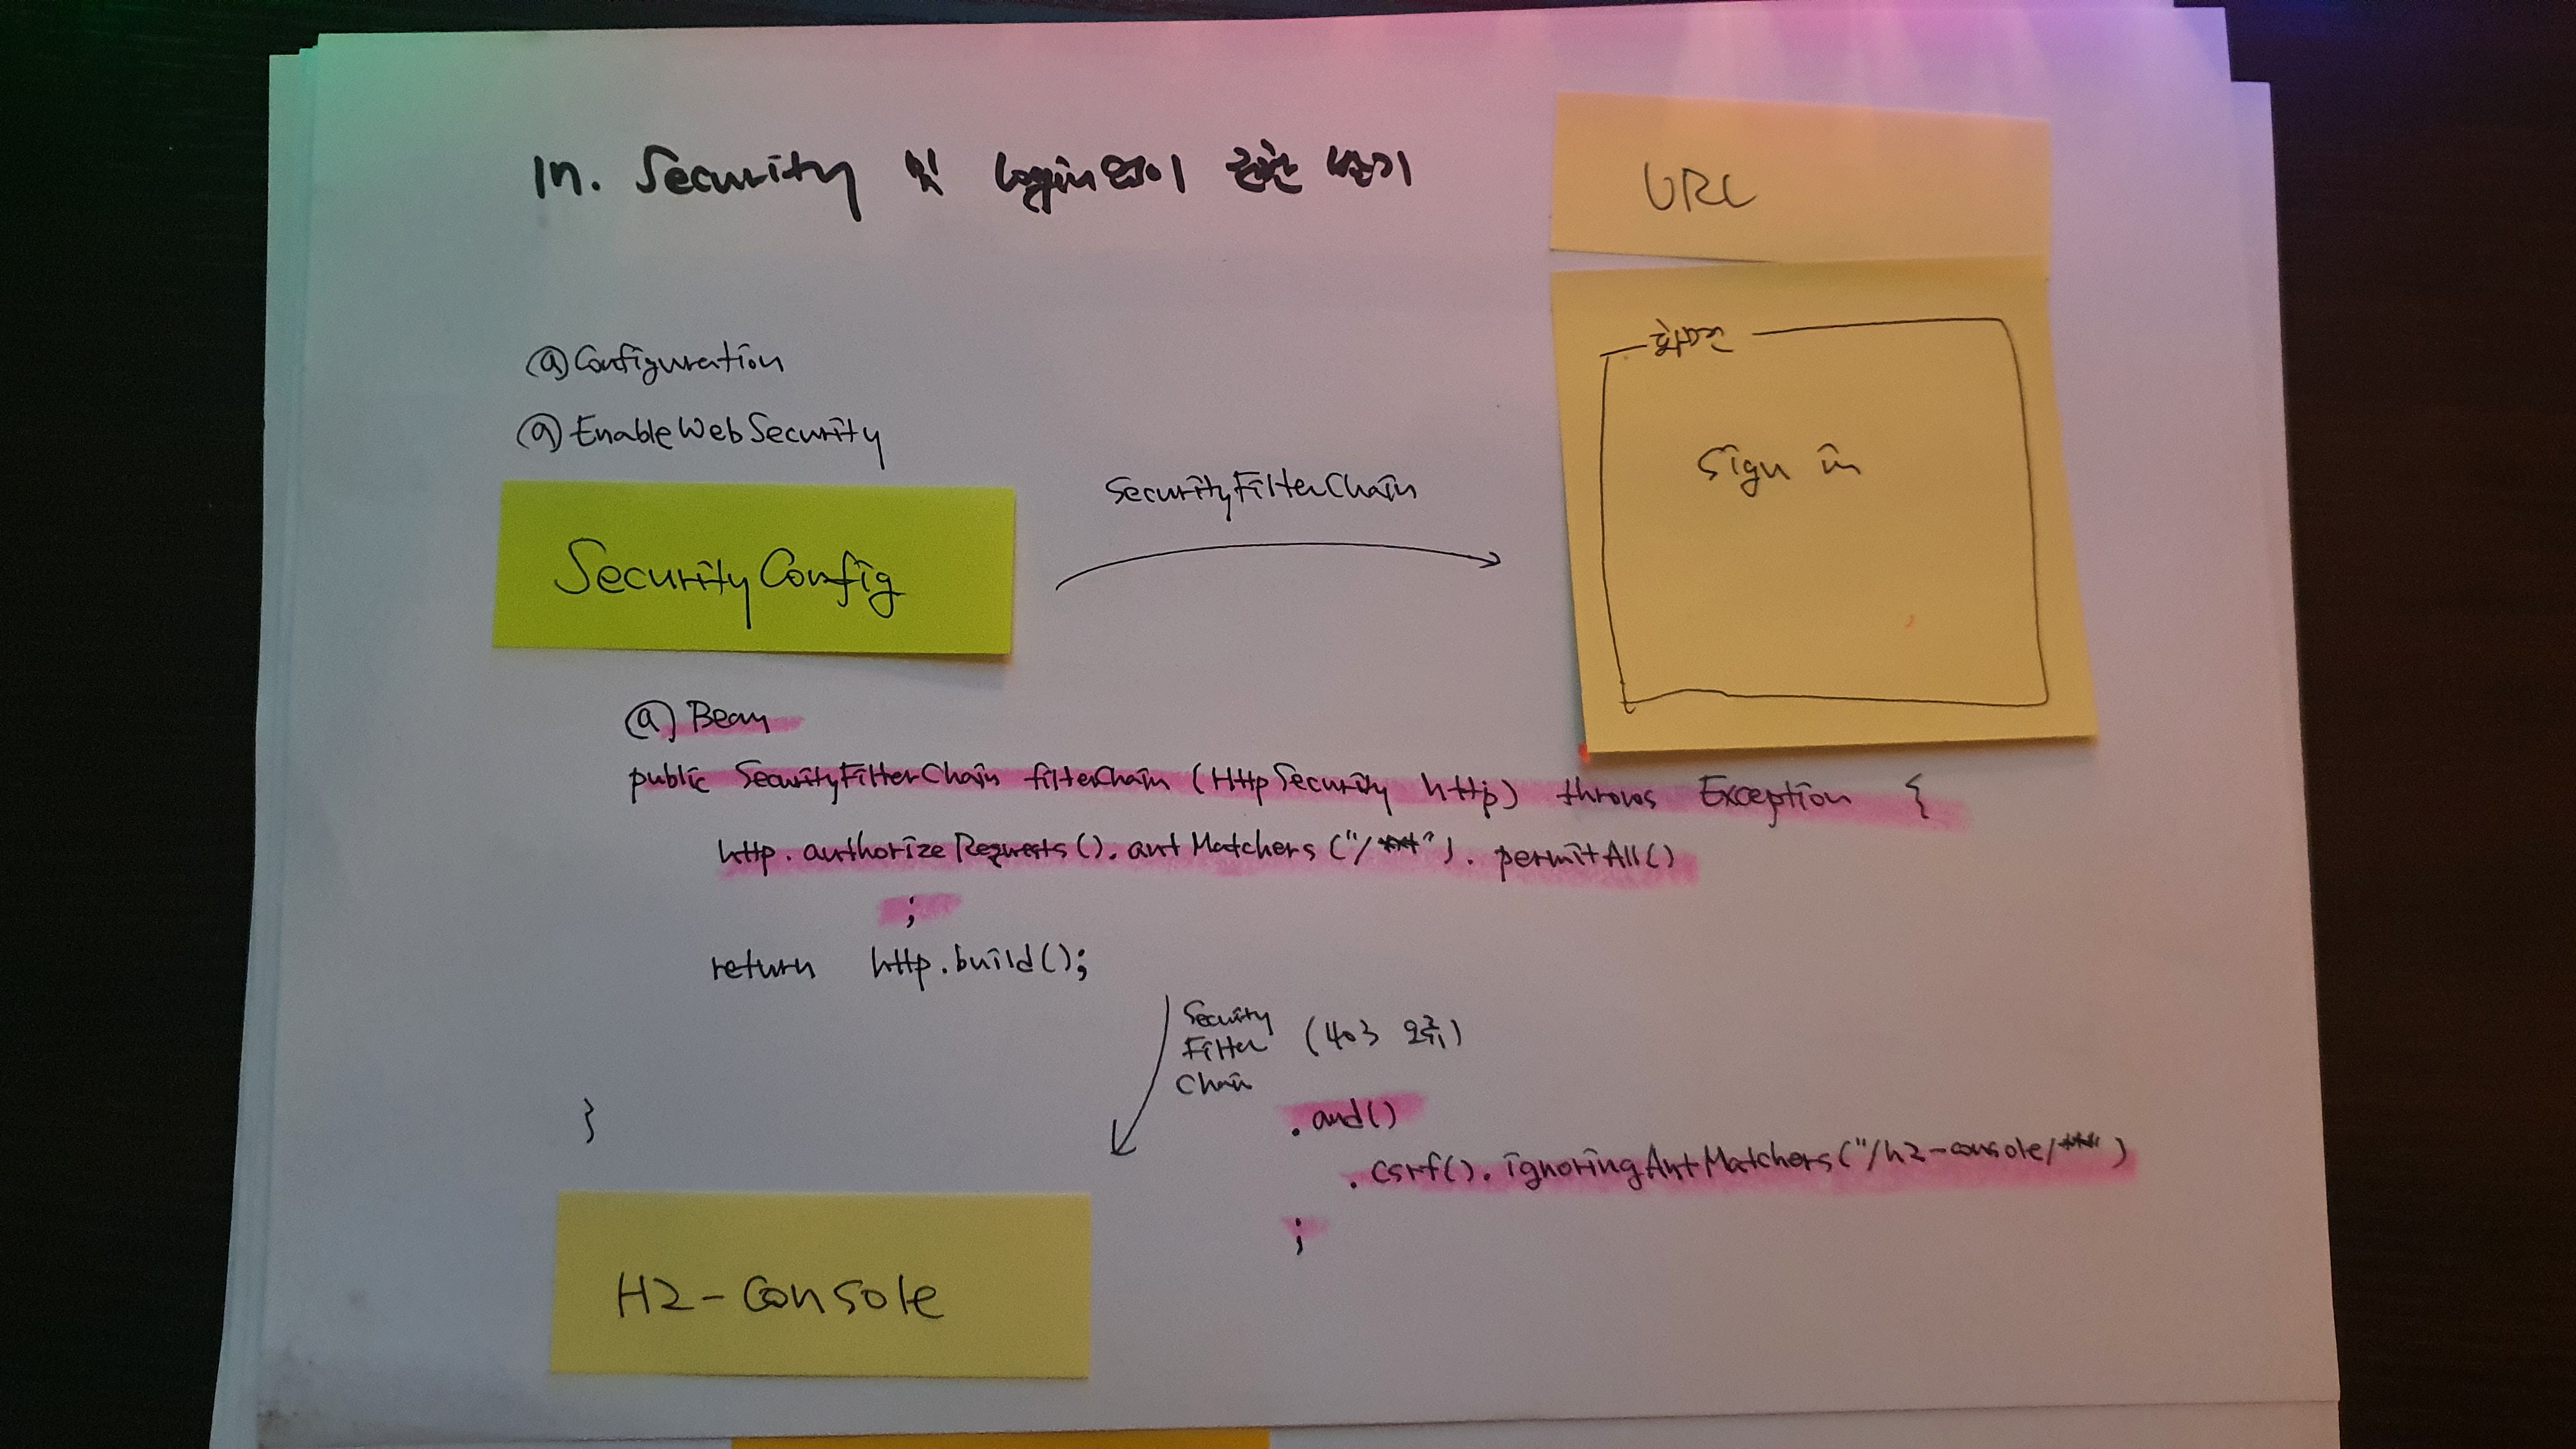 in. Security 및 login없이 권한 받기
URL
@Configuration
@EnableWebSecurity
화면
Sign in
SecurityFilterChain
SecurityConfig
@Bean
public SecurityFilterChain filterChain (HttpSecurity http) throws Exception {
http.authorizeRequests().antMatchers("/**").permitAll()
;
return http.build();
Security
Filter (403 오류)
Chain
}
.and()
.csrf().ignoringAntMatchers("/h2-console/**")
;
H2-Console